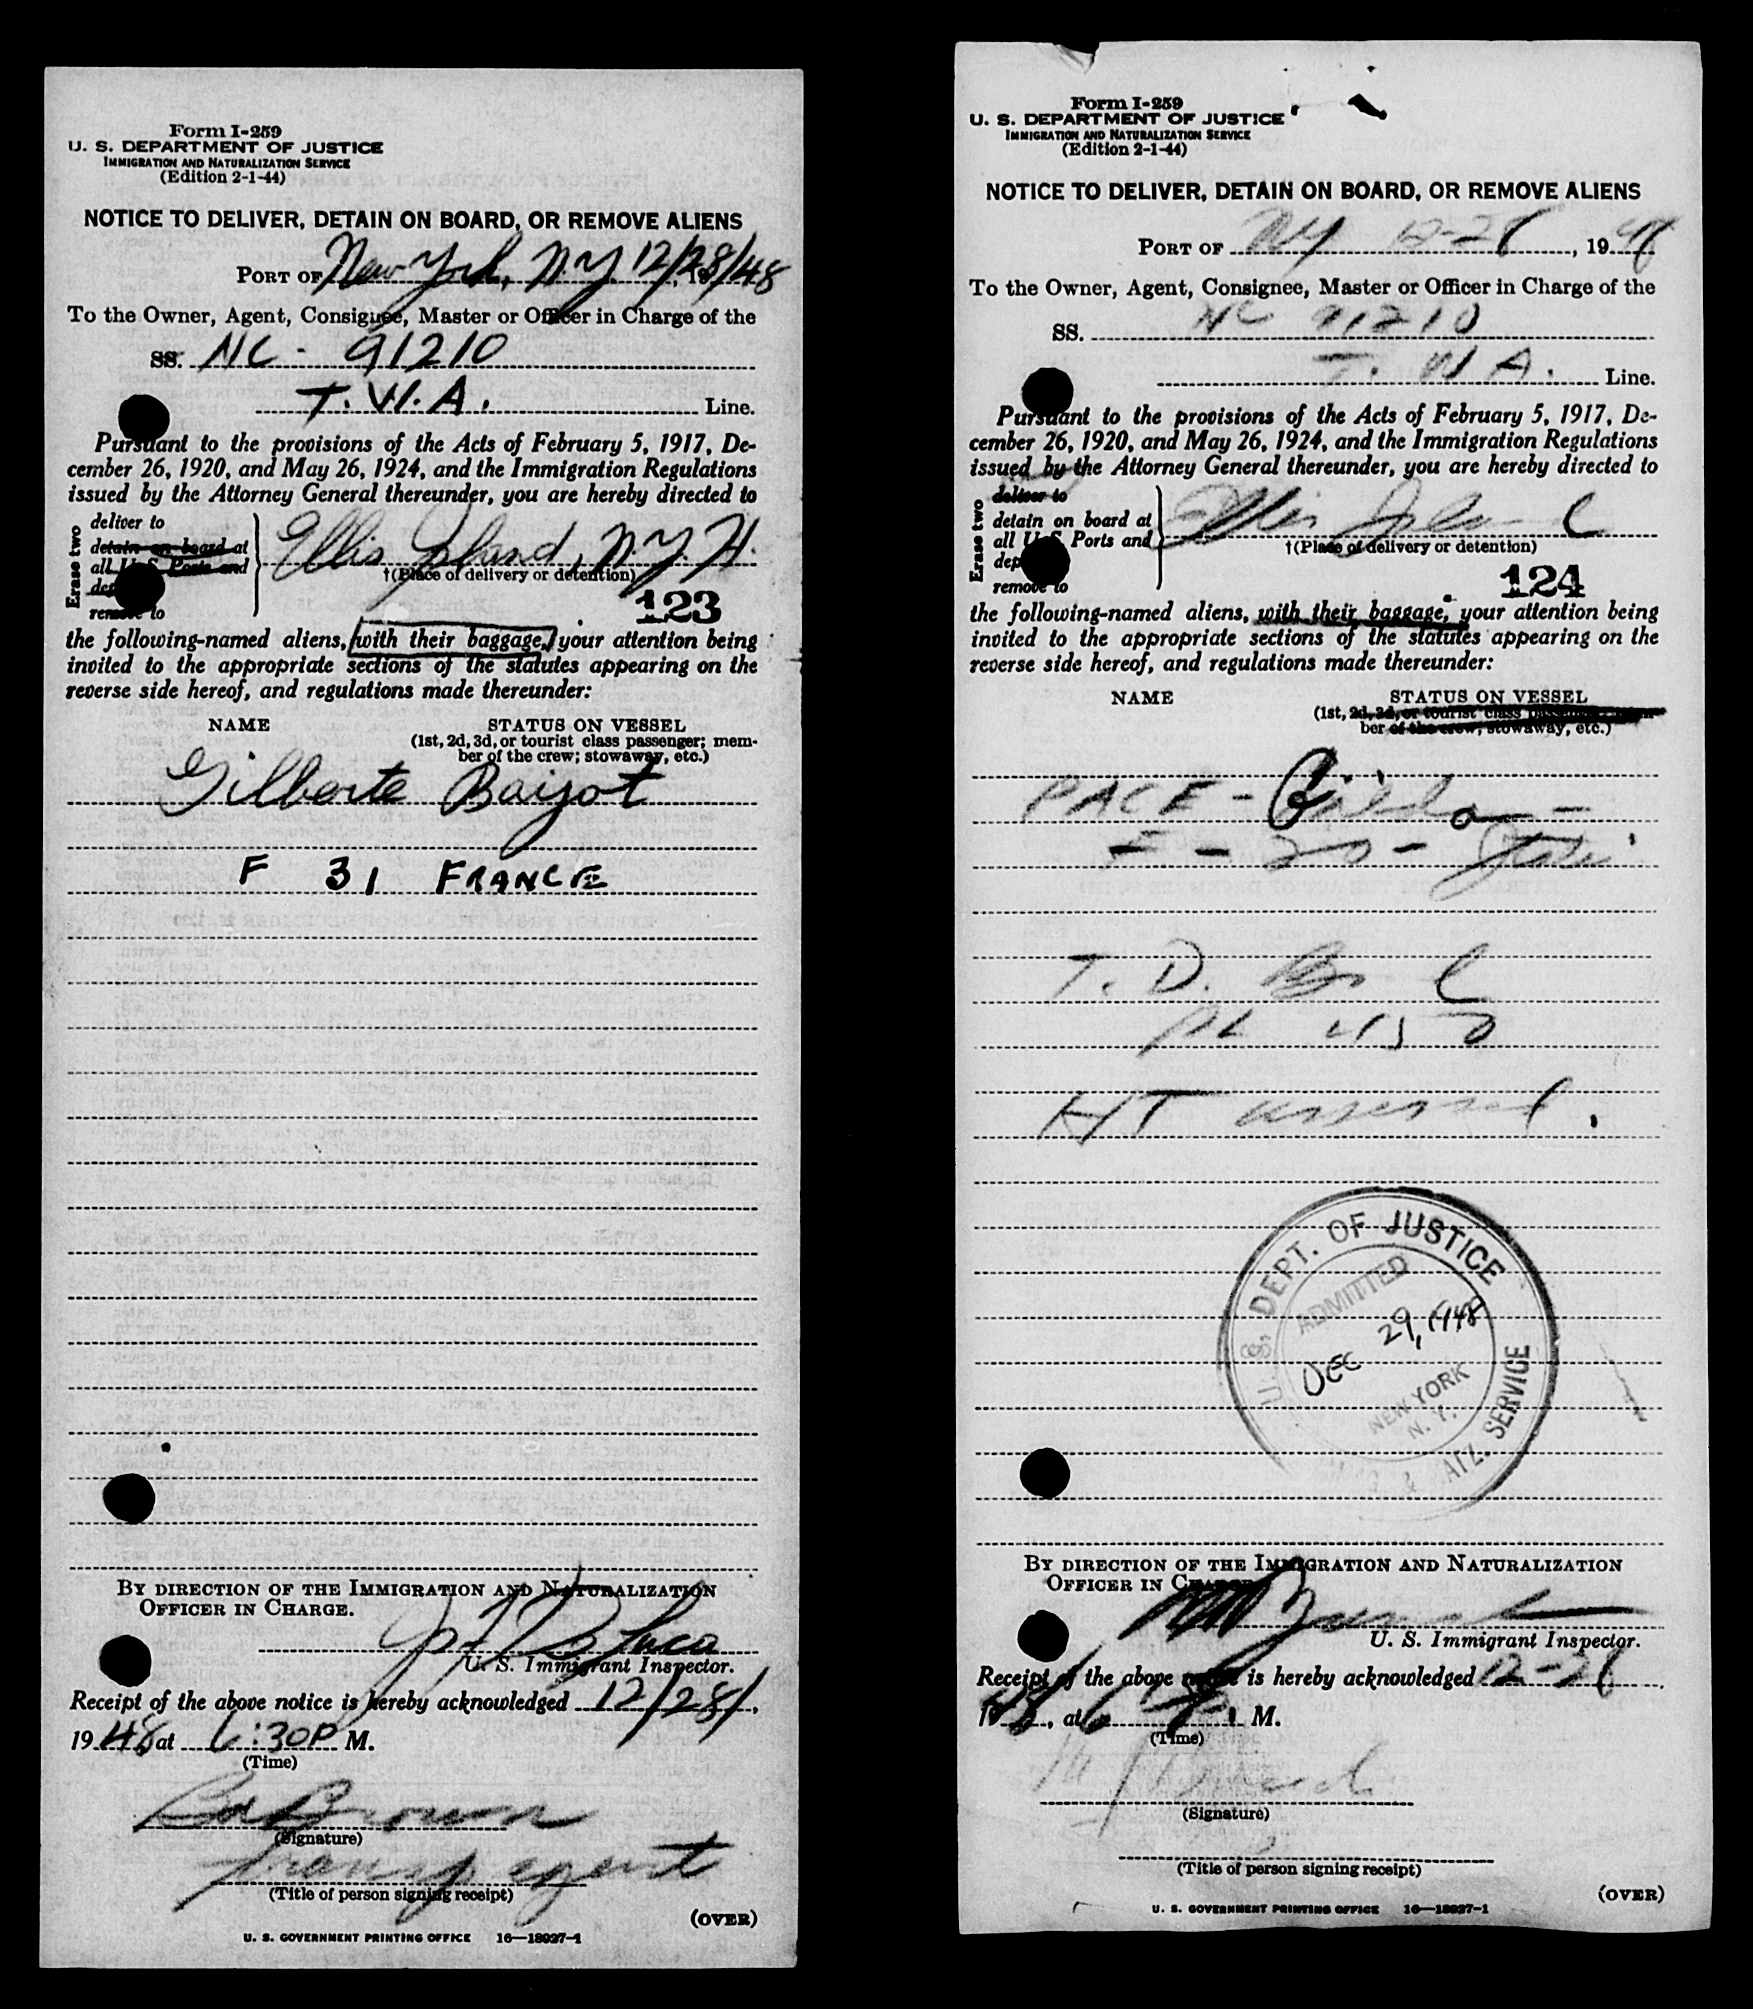 Form I-259
U. S. DEPARTMENT OF JUSTICE
IMMIGRATION AND NATURALIZATION SERVICE
(Edition 2-1-44)
NOTICE TO DELIVER, DETAIN ON BOARD, OR REMOVE ALIENS
PORT OF New York, N.Y. 12/28/48
To the Owner, Agent, Consignee, Master or Officer in Charge of the
SS. NC - 91210
T. W. A. Line.
Pursuant to the provisions of the Acts of February 5, 1917, De-
cember 26, 1920, and May 26, 1924, and the Immigration Regulations
issued by the Attorney General thereunder, you are hereby directed to
Erase two
deliver to
detain on board at
all U S Ports and
remove to
Ellis Island, N.Y.H.
†(Place of delivery or detention)
123
the following-named aliens, with their baggage, your attention being
invited to the appropriate sections of the statutes appearing on the
reverse side hereof, and regulations made thereunder:
NAME
STATUS ON VESSEL
(1st, 2d, 3d, or tourist class passenger; mem-
ber of the crew; stowaway, etc.)
Gilberte Baijot
F 31 FRANCE
BY DIRECTION OF THE IMMIGRATION AND NATURALIZATION
OFFICER IN CHARGE.
U. S. Immigrant Inspector.
Receipt of the above notice is hereby acknowledged 12/28/,
1948 at 6:30P M.
(Time)
Brown
(Signature)
Transp agent
(Title of person signing receipt)
(OVER)
U. S. GOVERNMENT PRINTING OFFICE 16—18927-1
Form I-259
U. S. DEPARTMENT OF JUSTICE
IMMIGRATION AND NATURALIZATION SERVICE
(Edition 2-1-44)
NOTICE TO DELIVER, DETAIN ON BOARD, OR REMOVE ALIENS
PORT OF NY 12-28, 1948
To the Owner, Agent, Consignee, Master or Officer in Charge of the
SS. NC 91210
T. W A. Line.
Pursuant to the provisions of the Acts of February 5, 1917, De-
cember 26, 1920, and May 26, 1924, and the Immigration Regulations
issued by the Attorney General thereunder, you are hereby directed to
Erase two
deliver to
detain on board at
all U S Ports and
remove to
Ellis Island
†(Place of delivery or detention)
124
the following-named aliens, with their baggage, your attention being
invited to the appropriate sections of the statutes appearing on the
reverse side hereof, and regulations made thereunder:
NAME
STATUS ON VESSEL
(1st, 2d, 3d, or tourist class passenger; mem-
ber of the crew; stowaway, etc.)
PACE - Gilda -
F - 20 - Itali
T. D.
HT assessed.
U. S. DEPT. OF JUSTICE
ADMITTED
DEC 29, 1948
NEW YORK
N. Y.
& NATZ. SERVICE
BY DIRECTION OF THE IMMIGRATION AND NATURALIZATION
OFFICER IN CHARGE.
U. S. Immigrant Inspector.
Receipt of the above notice is hereby acknowledged 12-28,
1948, at 6 P. M.
(Time)
(Signature)
(Title of person signing receipt)
(OVER)
U. S. GOVERNMENT PRINTING OFFICE 16—18927-1